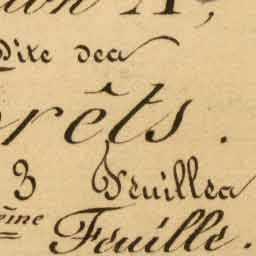 tion A,
Dite des
rêts.
3 Feuilles
ème Feuille.